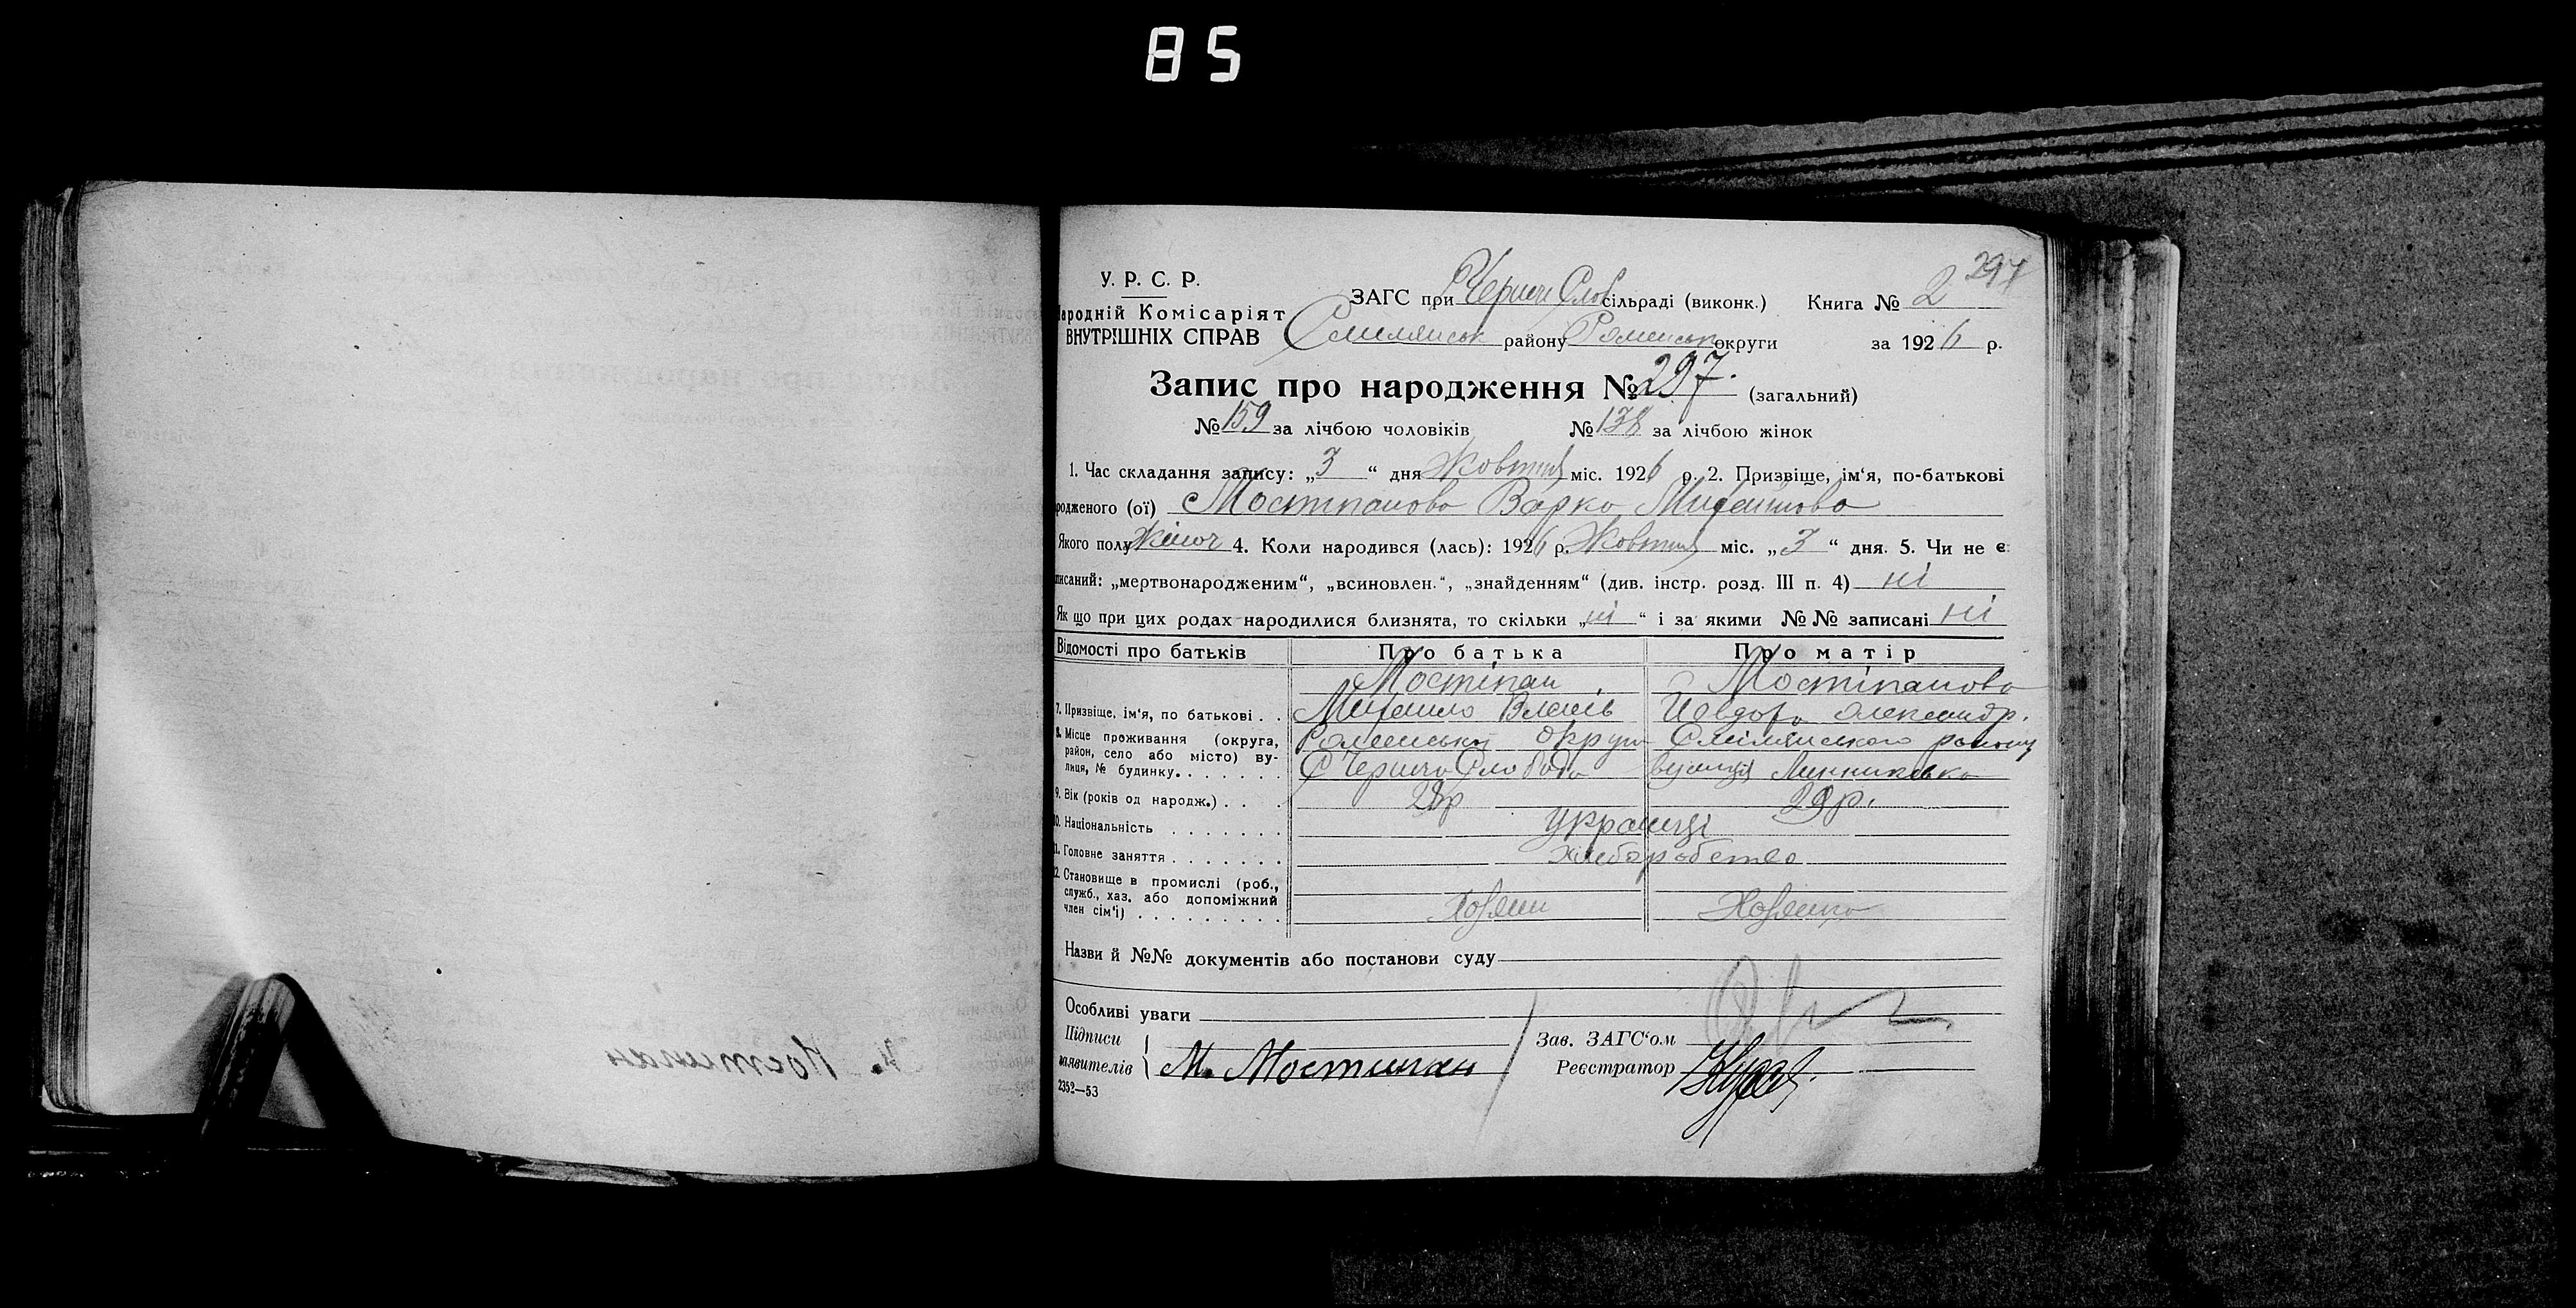 85
297
У. Р. С. Р.
ЗАГС при Чернеч Слоб сільраді (виконк.) Книга № 2
Народній Комісаріят
ВНУТРІШНІХ СПРАВ
Смілянськ району Роменськ округи за 1926 р.
Запис про народження № 297. (загальний)
№ 159 за лічбою чоловіків № 138 за лічбою жінок
1. Час складання запису: „3“ дня Жовтня міс. 1926 р. 2. Призвіще, ім‘я, по-батькові
родженого (ої) Мостіпанова Варка Михайлова
Якого полу Жіноч 4. Коли народився (лась): 1926 р. Жовтня міс. „3“ дня. 5. Чи не є
писаний: „мертвонародженим“, „всиновлен.“, „знайденням“ (див. інстр. розд. III п. 4) ні
Як що при цих родах народилися близнята, то скільки „ні“ і за якими №№ записані ні
Відомості про батьків Про батька Про матір
Мостіпан Мостіпанова
7. Призвіще, ім‘я, по батькові . . Михайло Власів Иовдоха Олександр.
8. Місце проживання (округа, Роменської округи Смілянского району
район, село або місто) ву-
лиця, № будинку. С Чернеча Слобода вулиця Линниківка
9. Вік (років од народж.) . . . 28р 29р.
10. Національність українці
11. Головне заняття хліборобство
12. Становище в промислі (роб.,
служб., хаз. або допоміжний
член сім‘ї) Хозяин Хозяйка
Назви й №№ документів або постанови суду
Особливі уваги
Підписи Зав. ЗАГС‘ом
заявителів М. Мостипан Реєстратор
2352—53